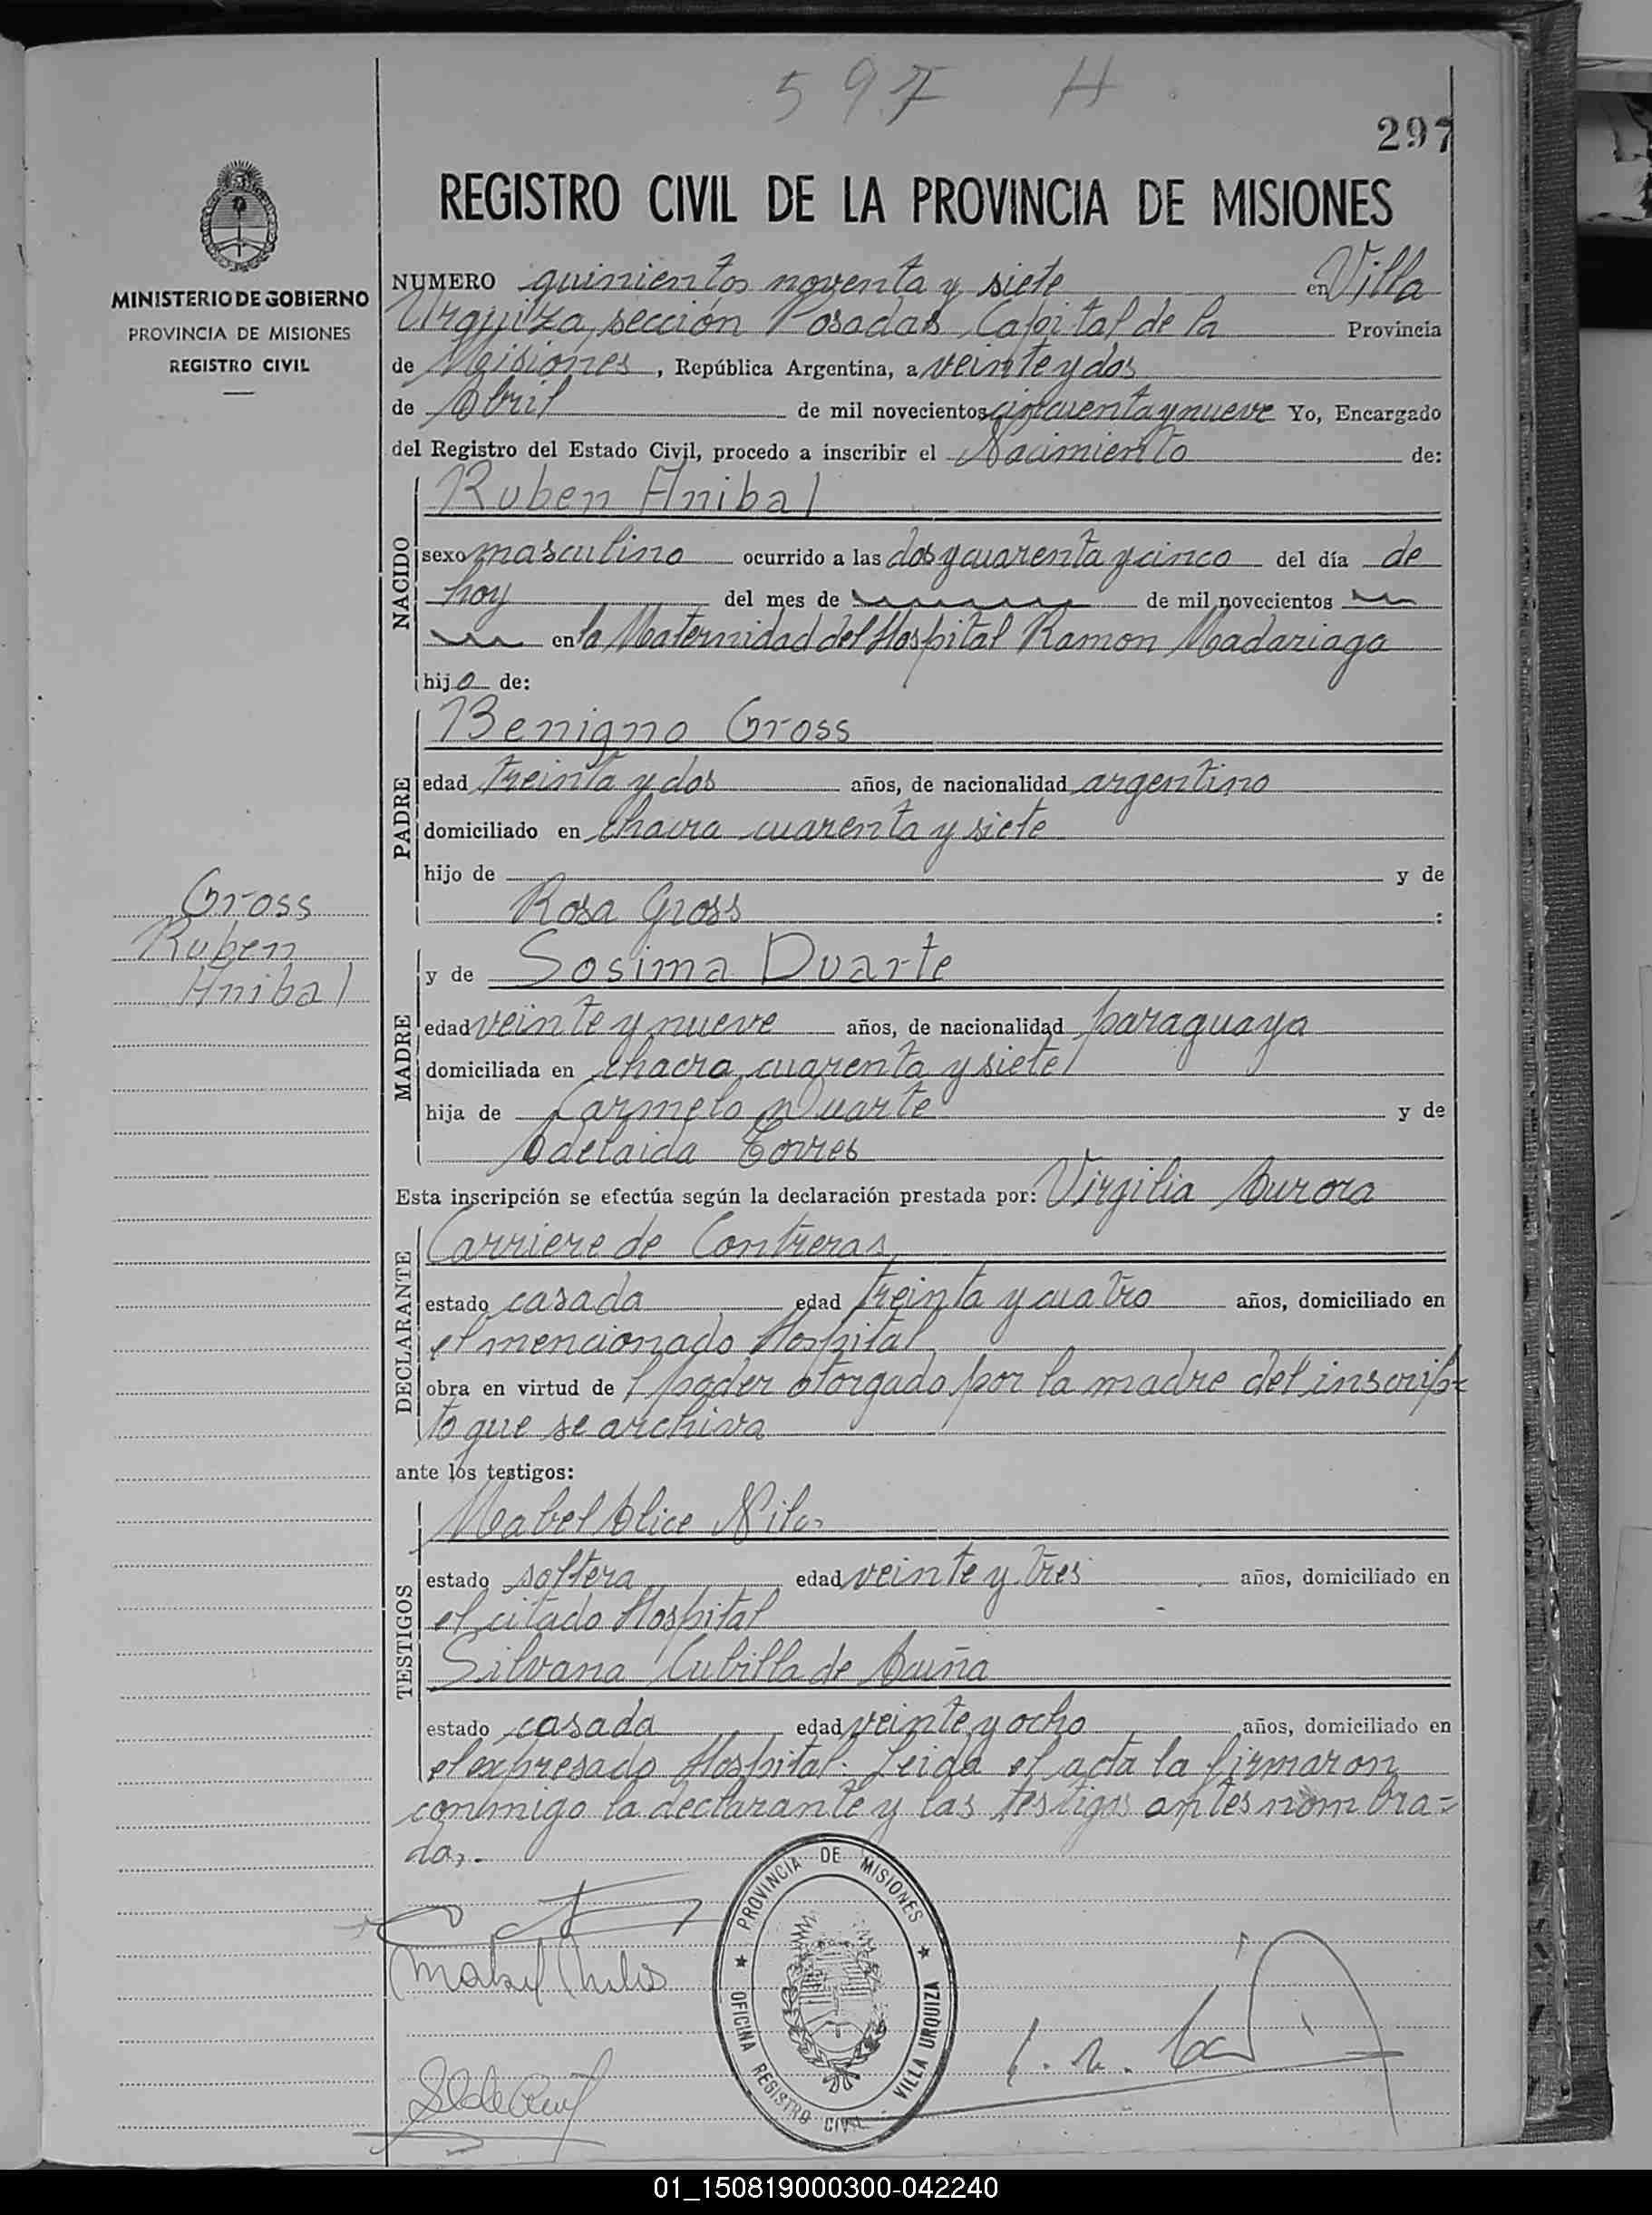 597 H
297
MINISTERIO DE GOBIERNO
PROVINCIA DE MISIONES
REGISTRO CIVIL
REGISTRO CIVIL DE LA PROVINCIA DE MISIONES
NUMERO quinientos noventa y siete en Villa
Urquiza, sección Posadas Capital de la Provincia
de Misiones, República Argentina, a veinte y dos
de Abril de mil novecientos cincuenta y nueve Yo, Encargado
del Registro del Estado Civil, procedo a inscribir el Nacimiento de:
NACIDO
Ruben Anibal
sexo masculino ocurrido a las dos y cuarenta y cinco del día de
hoy del mes de de mil novecientos
en la Maternidad del Hospital Ramon Madariaga
hijo de:
PADRE
Benigno Gross
edad treinta y dos años, de nacionalidad argentino
domiciliado en chacra cuarenta y siete
hijo de y de
Rosa Gross :
Gross
Ruben
Anibal
MADRE
y de Sosima Duarte
edad veinte y nueve años, de nacionalidad paraguaya
domiciliada en chacra cuarenta y siete
hija de Carmelo Duarte y de
Adelaida Torres
Esta inscripción se efectúa según la declaración prestada por: Virgilia Aurora
DECLARANTE
Carriere de Contreras
estado casada edad treinta y cuatro años, domiciliado en
el mencionado Hospital
obra en virtud del poder otorgado por la madre del inscrip-
to que se archiva
ante los testigos:
TESTIGOS
Mabel Alice
estado soltera edad veinte y tres años, domiciliado en
el citado Hospital
Silvana Cubilla de Acuña
estado casada edad veinte y ocho años, domiciliado en
el expresado Hospital. Leida el acta la firmaron
conmigo la declarante y las testigos antes nombra-
das.-
PROVINCIA DE MISIONES
OFICINA REGISTRO CIVIL VILLA URQUIZA
01_150819000300-042240